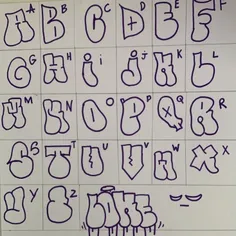 A A B B C C D D E E F F
G G H H i i j j K K L L
M M N N O O P P Q Q R R
S S T T U U V V W W X X
Y Y Z Z